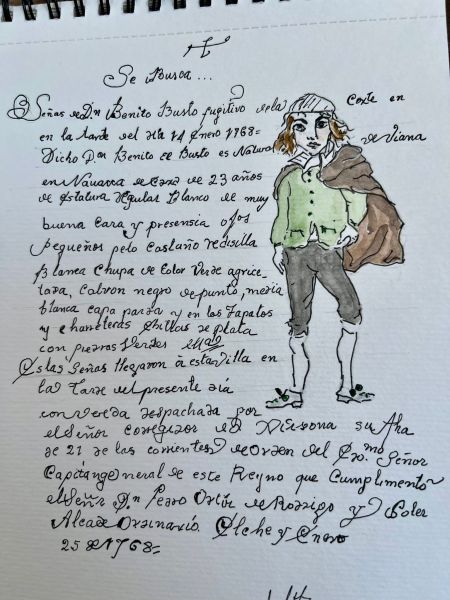 Se Busca...
Señas de Dn Benito Busto fugitivo de la Corte en
en la tarde del dia 14 Enero 1768=
Dicho Dn Benito de Busto es Natural de Viana
en Navarra de edad de 23 años
de estatura regular Blanco de muy
buena Cara y presensia ojos
pequeños pelo Castaño redisilla
Blanca Chupa de Color Verde
Calson negro de punto, media
blanca capa parda y en los Zapatos
y charreteras Evillas de plata
con piedras Verdes
Estas Señas llegaron à esta Villa en
la Tarde del presente dia
con Vereda despachada por
el Señor Corregidor de su fha
de 21 de los corrientes de orden del Exmo Señor
Capitan General de este Reyno que Cumplimento
el Señr Dn Pedro Ortiz de Rodrigo y Soler
Alcalde Ordinario. Elche y Enero
25 de 1768=